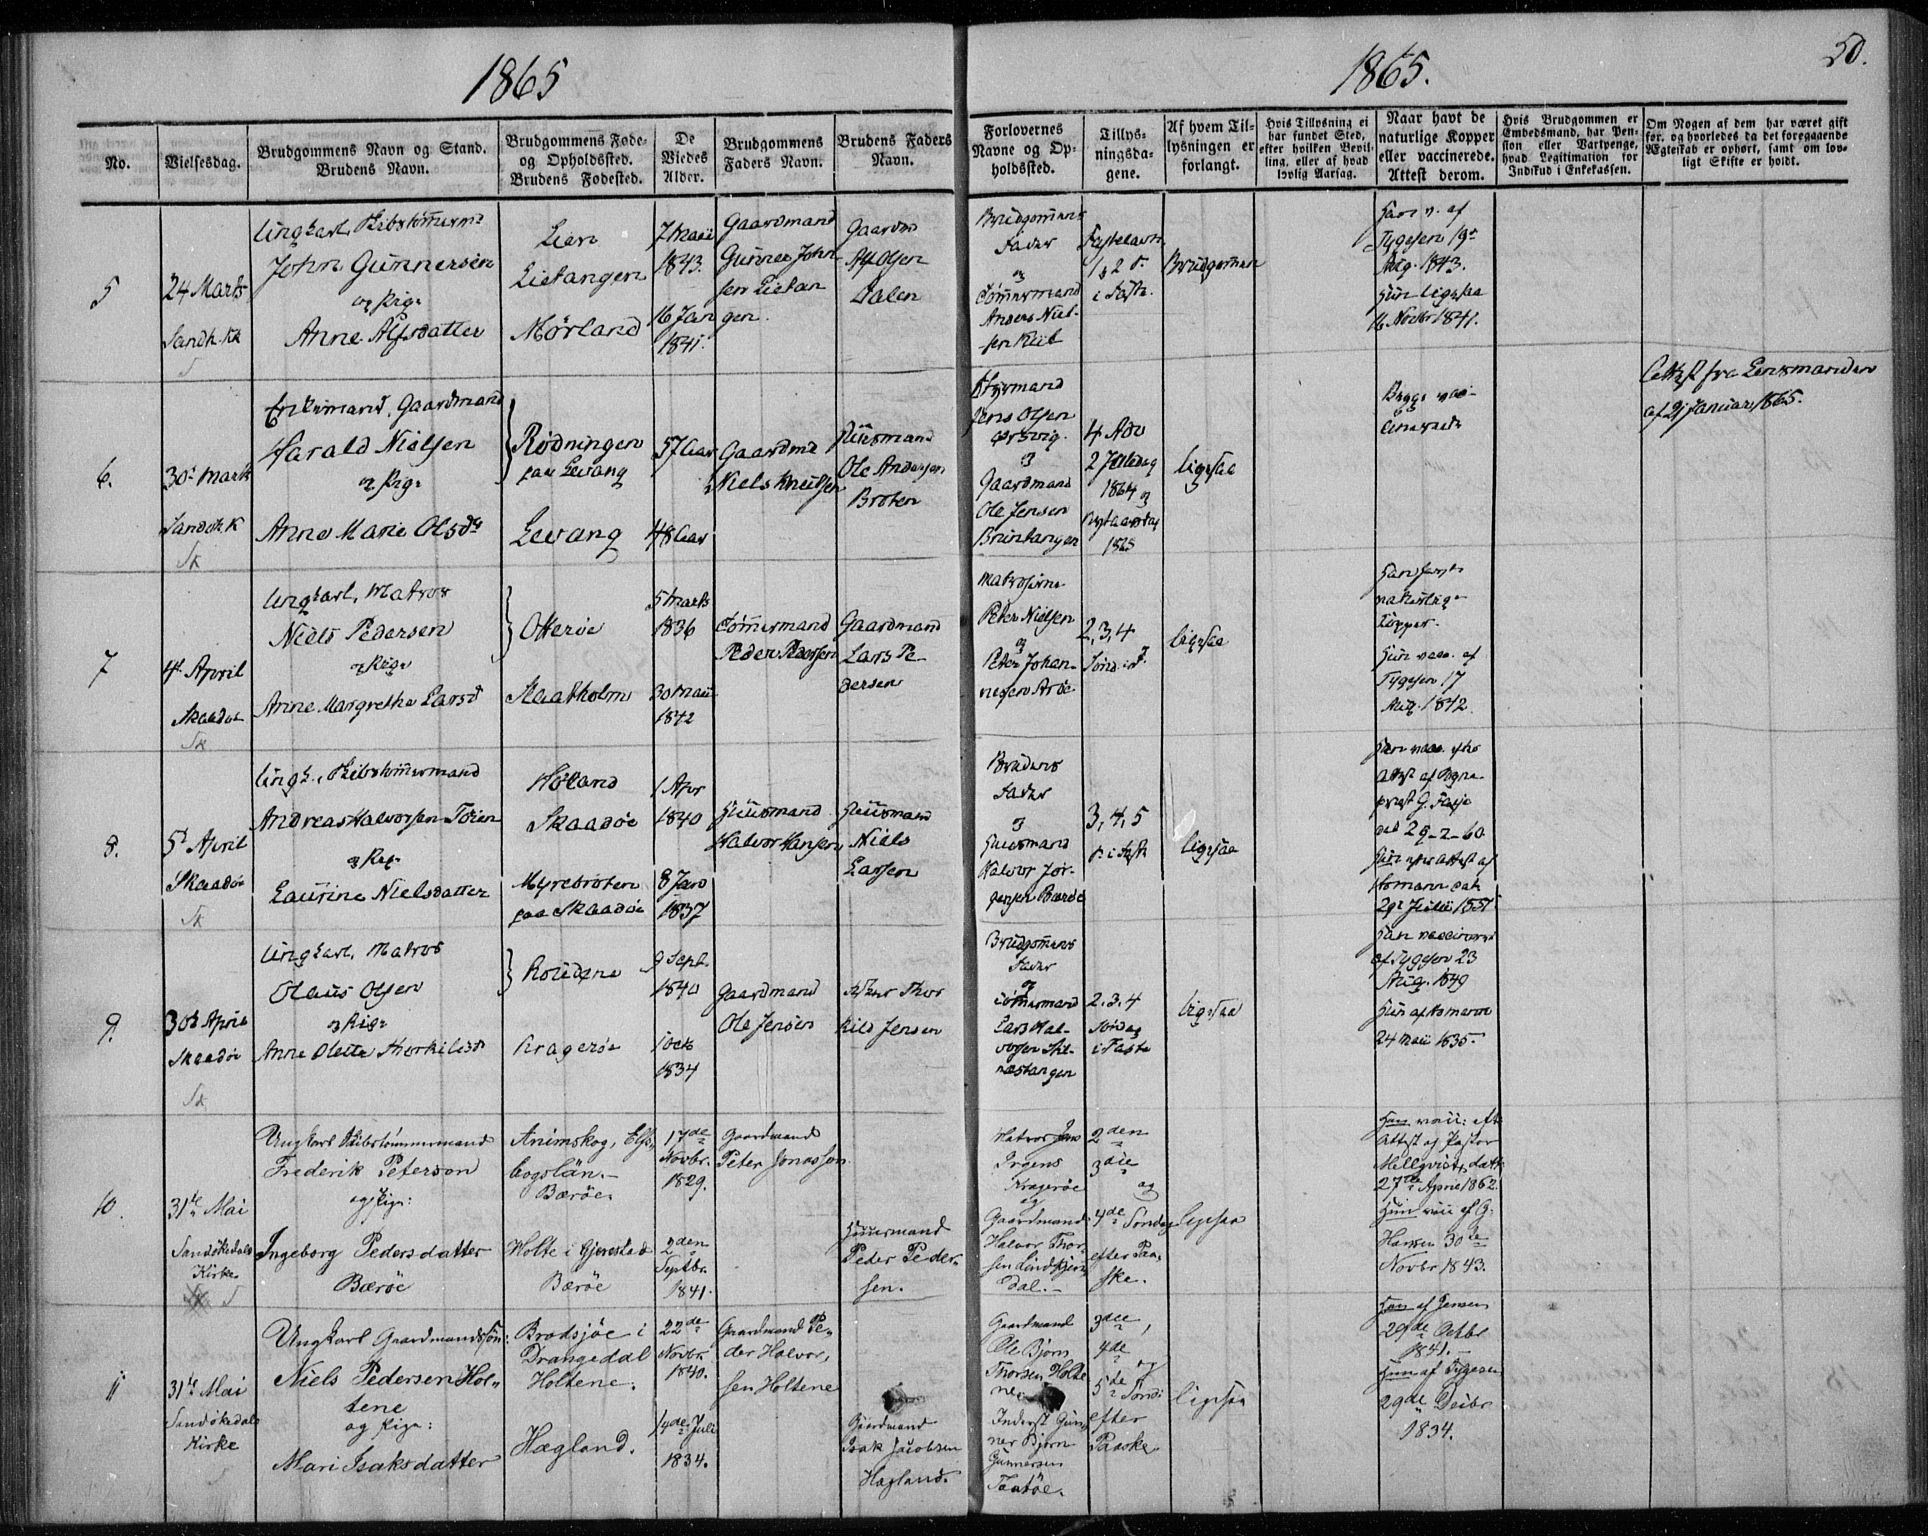 1865
1865.
50.
No.
Vielsesdag.
Brudgommens Navn og Stand.
Brudens Navn.
Brudgommens Føde-
og Opholdssted.
Brudens Fødested.
De
Viedes
Alder.
Brudgommens
Faders Navn.
Brudens Faders
Navn.
Forlovernes
Navne og Op-
holdssted.
Tillys-
ningsda-
gene.
Af hvem Til-
lysningen er
forlangt.
Hvis Tillysning ei
har fundet Sted,
efter hvilken Bevil-
ling, eller af hvad
lovlig Aarsag.
Naar havt de
naturlige Kopper
eller vaccinerede.
Attest derom.
Hvis Brudgommen er
Embedsmand, har Pen-
sion eller Vartpenge,
hvad Legitimation for
Indskud i Enkekassen.
Om Nogen af dem har været gift
før, og hvorledes da det foregaaende
Ægteskab er ophørt, samt om lov-
ligt Skifte er holdt.
5
24 Marts
Sandk. Kk
Ungkarl, Skibstømmerm:
John Gunnersen
og Pige
Anne Alfsdatter
Lien
Lietangen
Mørland
7 Maii
1843.
16 Jan
1841.
Gaardmand
Gunner John-
sen Lietan
gen.
Gaardm
Alf Olsen
Dalen
Brudgommens
Fader
og
Tømmermand
Anders Niel-
sen
Fastelavn
1 & 2 S.
i Faste.
Brudgommen
Ham v. af
Tygesen 19de
Aug. 1843.
Hun ligesaa
16 Novbr 1841.
6.
30te Marts
Sandøk. K
Sk
Enkemand, Gaardmand
Harald Nielsen
og Pige
Anne Marie Olsdr
Rødningen
paa Levang
Levang
57 Aar
48 Aar
Gaardmd
Niels Knudsen
Huusmand
Ole Andersen
Broten
Styrmand
Jens Olsen
Ørsvig.
og
Gaardmand
Ole Jensen
Bruntangen
4 Adv
2 Juledag
1864 og
Nytaarsdag
1865
ligesaa
Begge vac-
cinerede
Attest fra Lensmanden
af 21 Januar 1865.
7
4de April
Skaadøe
Sk
Ungkarl, Matros
Niels Pedersen
og Pige
Anne Margrethe Larsd
Otterøe
Skaatholm
5 Marts
1836
30 Maii
1842
Tømmermand
Peder Pedersen
Gaardmand
Lars Pe-
dersen
Matroserne
Peter Nielsen
og
Peter Johan-
nesen Arøe
2, 3, 4
Sønd. i F.
ligesaa
Han havt
naturlige
Kopper.
Hun vacc. af
Tygesen 17
Aug. 1842
8.
5te April
Skaadøe
Sk
Ungk., Skibstømmermand
Andreas Halvorsen Toien
og Pige
Laurine Nielsdatter
Høland
Skaadøe
Myrebroten
paa Skaadøe
1 Apr
1840
8 Jan
1837
Huusmand
Halvor Hansen
Huusmand
Niels
Larsen
Brudens
Fader
og
Huusmand
Halvor Jør-
gensen Bærøe
3, 4, 5
S. i Faste
ligesaa
Han vacc. efter
Attest af Sogne-
præst G. Faye
dat 29-2-60
Hun efter Attest af
Homann dat
29de Juli 1851
9.
30te April
Skaadøe
Sk
Ungkarl, Matros
Olaus Olsen
og Pige
Anne Olette Thorkilsdr
Kragerøe
9 Sept.
1840
1 Oct
1834
Gaardmand
Ole Jensen
Thor
kild Jensen
Brudgommens
Fader
og
Tømmermand
Lars Hal-
vorsen Skt-
næstangen
2. 3. 4
Søndag
i Faste
ligesaa
Han vaccineret
af Tygesen 23
Aug. 1849
Hun af Homann
24 Maii 1835
10.
31te Mai
Sandøkedals
Kirke
S
Ungkarl Skibstømmermand
Frederik Peterson
og Pige:
Ingeborg Pedersdatter
Bærøe
Animskog, Elfs-
borgslän.
Bærøe.
Holte i Gjerestad
Bærøe
17de
Novbr.
1829.
2den
Septbr.
1841.
Gaardmand
Peter Jonassen
Huusmand
Peder Peder-
sen.
Halvor Jens
Irgens
Kragerøe
og
Gaardmand
Halvor Thor-
sen Lindbjørn-
dal.
2den
3die
og
4de Søndag
efter Paa-
ske.
ligesaa
Han vacc: eft.
Attest af Pastor
Mellqvist, datt:
27de April 1862.
Hun vacc af G.
Hansen 30te
Novbr 1843.
11
31te Mai
Sandøkedals
Kirke
S
Ungkarl Gaardmandssøn:
Niels Pedersen Hol-
tene
og Pige:
Mari Isaksdatter
Brødsjøe i
Drangedal
Holtene.
Hægland.
22de
Novbr.
1840.
14de Juli
1834.
Gaardmand Pe-
der Halvor-
sen Holtene
Gaardmand
Isak Jacobsen
Hægland.
Gaardmand
Ole Bjørn
Thorsen Holte
ne
Inderst Gun-
ner Bjørn
Gunnersen
Taatøe.
3die,
4de
og
5te Sønd:
efter
Paaske
ligesaa
Han af Jensen
29de Octbr
1841.
Hun af Tygesen
29de Decbr
1834.